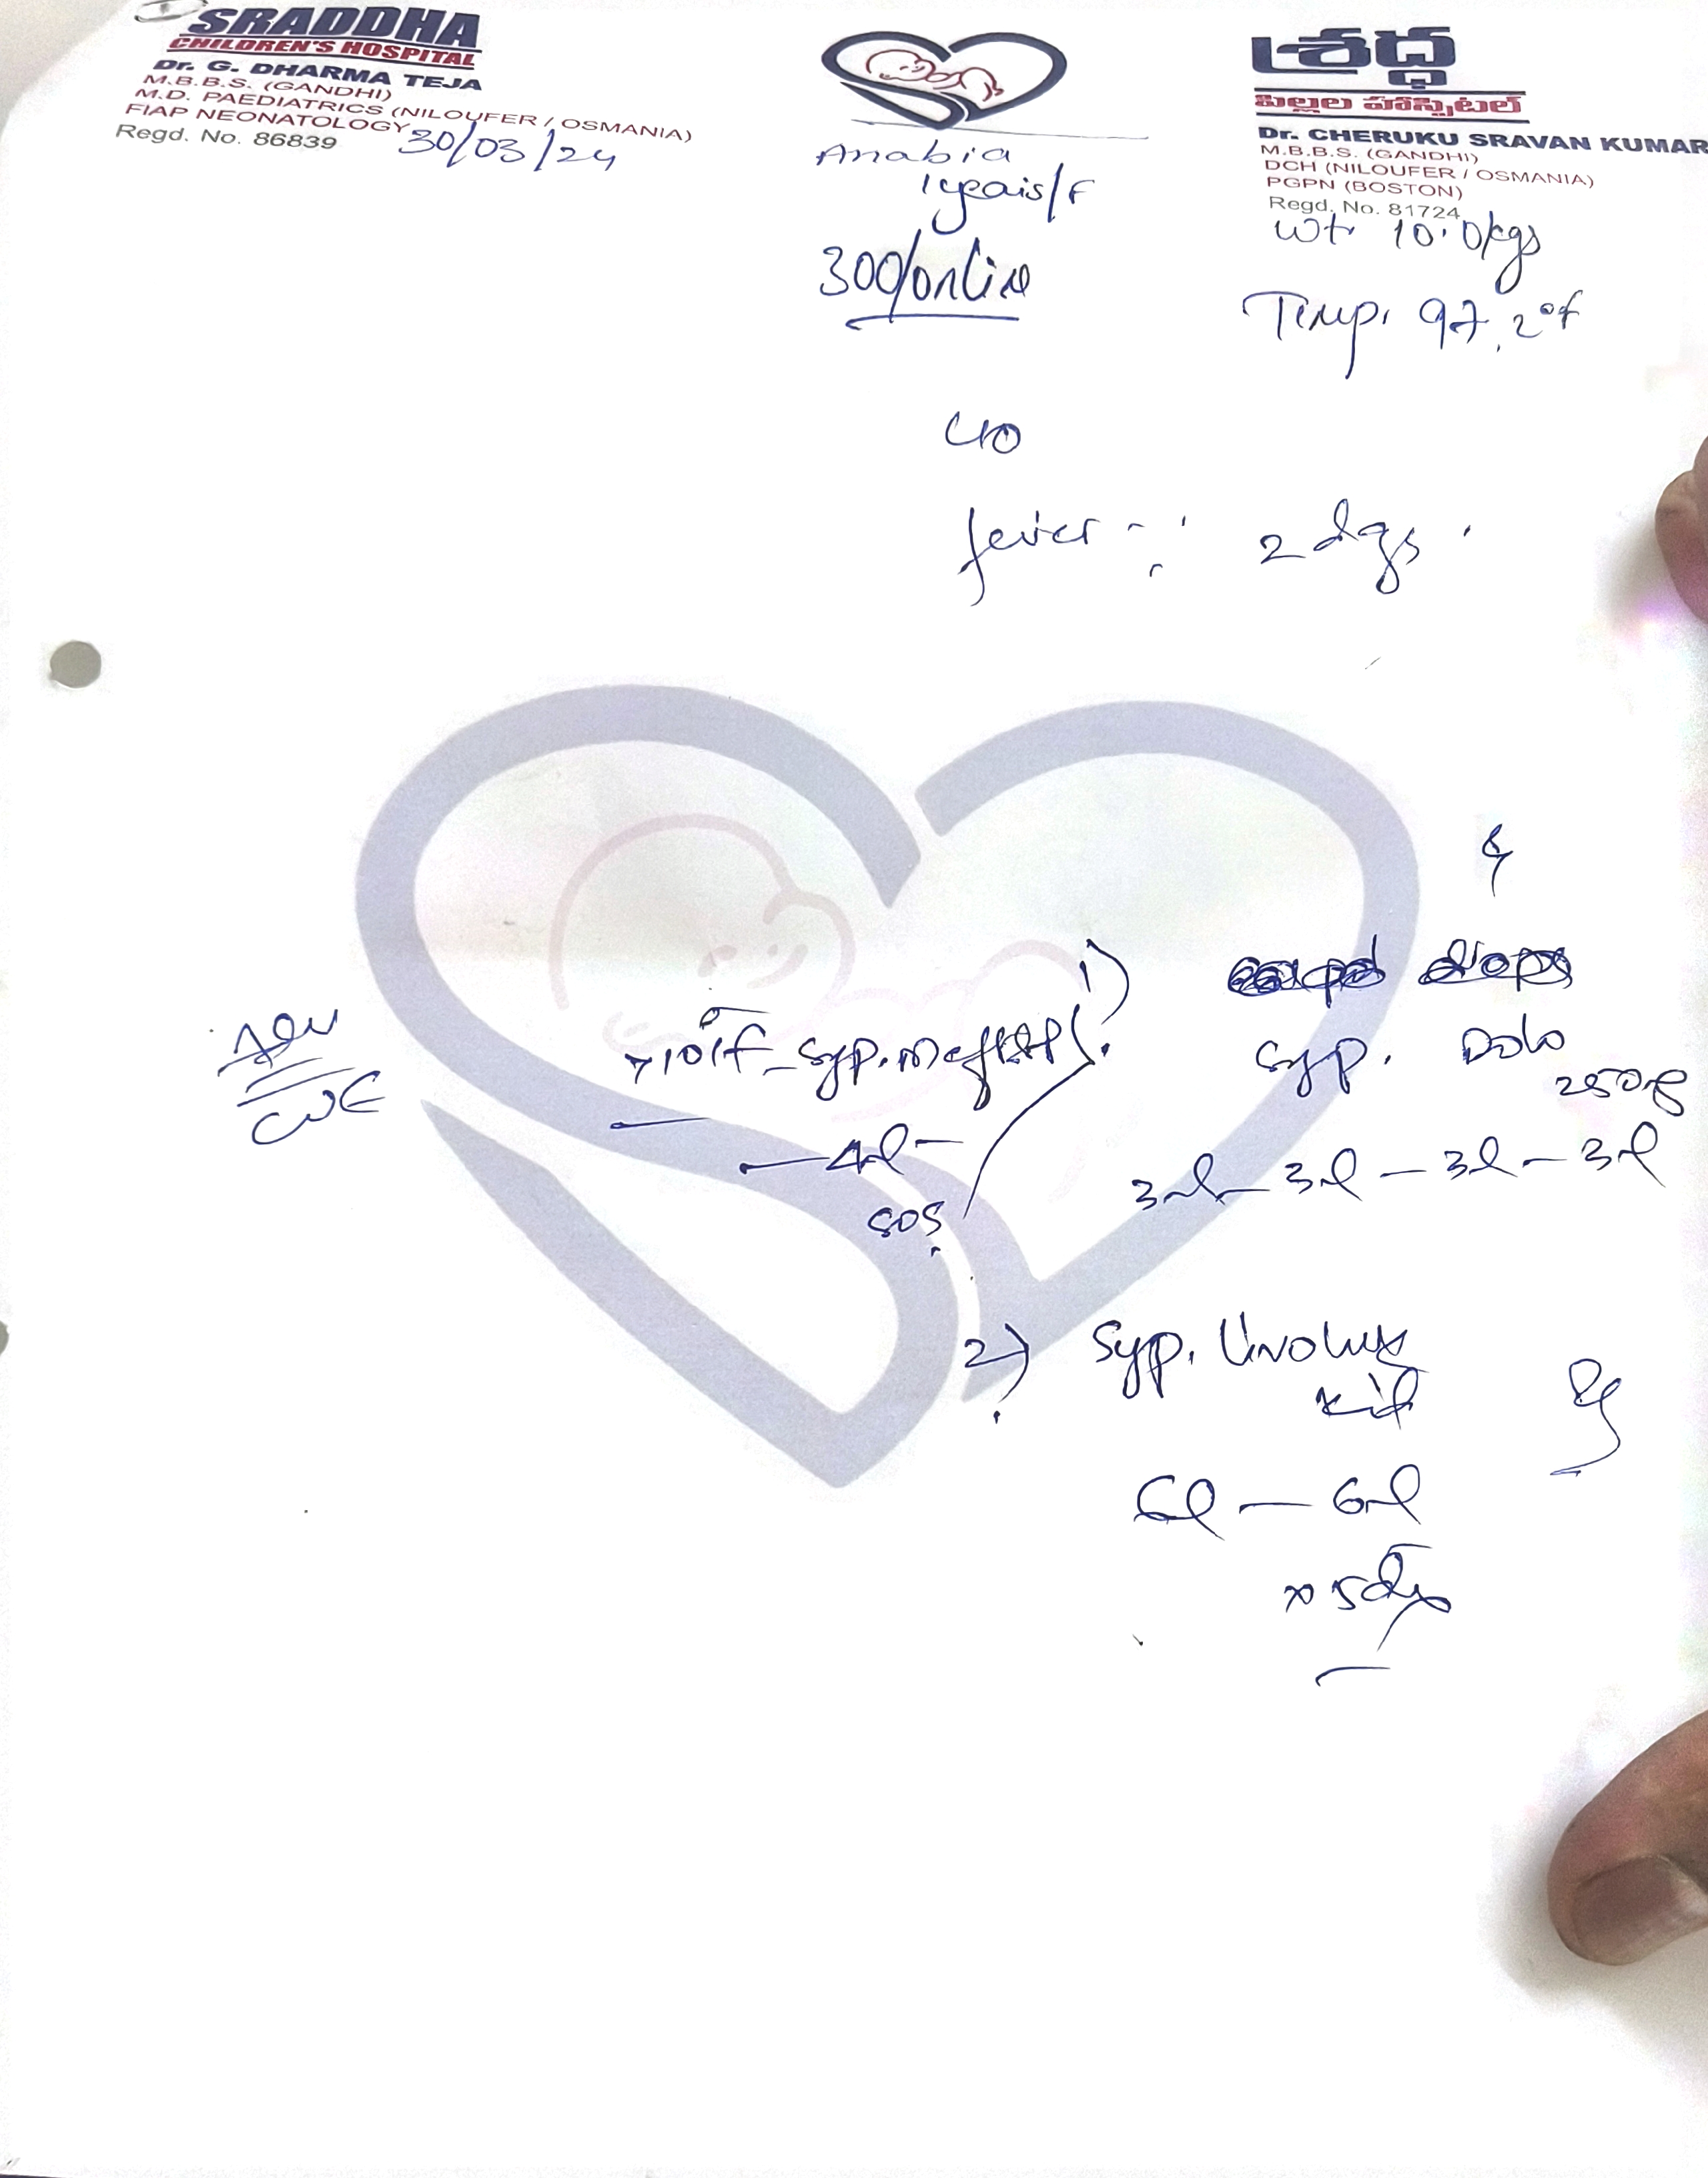 SRADDHA
CHILDREN'S HOSPITAL
Dr. G. DHARMA TEJA
M.B.B.S. (GANDHI)
M.D. PAEDIATRICS (NILOUFER / OSMANIA)
FIAP NEONATOLOGY
Regd. No. 86839
30/03/24
Anabia
1years/F
300/online
శ్రద్ధ
పిల్లల హాస్పిటల్
Dr. CHERUKU SRAVAN KUMAR
M.B.B.S. (GANDHI)
DCH (NILOUFER / OSMANIA)
PGPN (BOSTON)
Regd. No. 81724
Wt. 10.0kgs
Temp. 97.2°f
c/o
fever 2 days
Adv
1)
Syp. Dolo
250
3ml - 3ml - 3ml - 3ml
>101F - Syp.
4ml
SOS
2) Syp.
kit
6ml - 6ml
x 5days